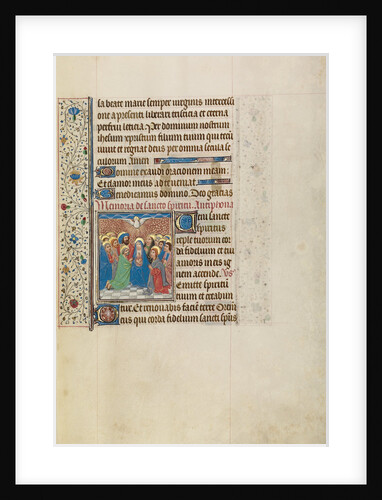 sa beate marie semper uirginis intercessi
one a presenti liberari tristicia et eterna
perfrui leticia Per dominum nostrum
ihesum xpristum filium tuum qui tecū
uiuit et regnat deus per omnia secula se
culorum Amen
Domine exaudi orationem meam
Et clamor meus ad te ueniat
Benedicamus domino Deo gracias
Memoria de sancto spiritu Antiphona
Ueni sancte
spiritus
reple tuorum cor
da fidelium et tui
amoris in eis ig
nem accende Vs
Emitte spiritū
tuum et creabun
tur Et renouabis faciē terre Oremus
Deus qui corda fidelium sancti spūs